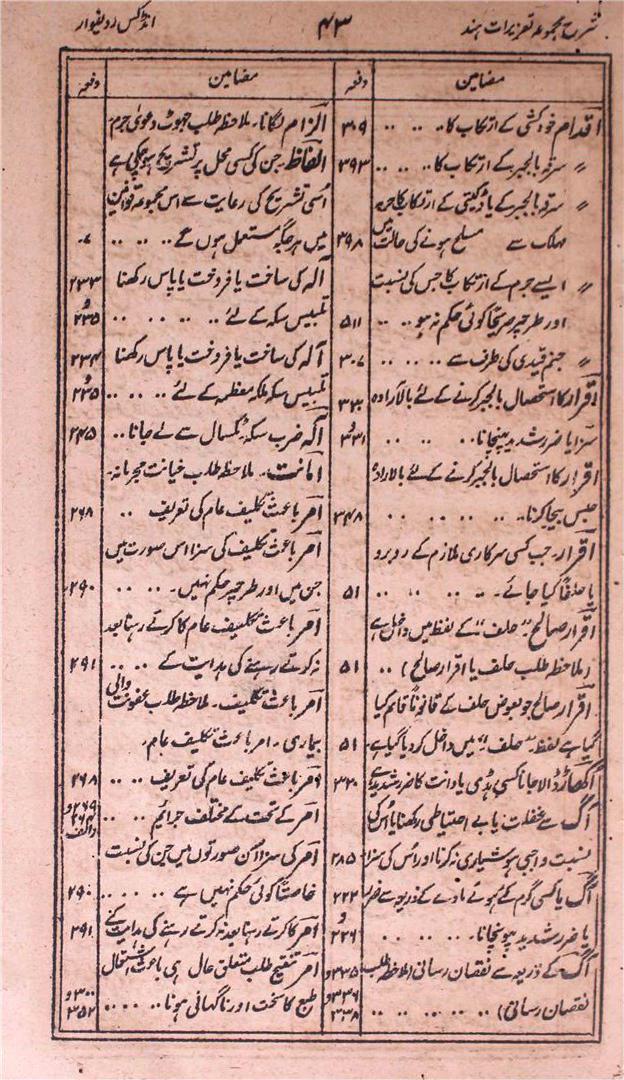 شرح مجموعہ تعزیرات ہند
۴۳
انڈکس ردیفوار
مضامین
دفعہ
اقدام خودکشی کے ارتکاب کا .. .. .. ۳۰۹
〃 سرقہ بالجبر کے ارتکاب کا .. .. .. ۳۹۳
〃 سرقہ بالجبر کے یا ڈکیتی کے ارتکاب کا حربہ
مہلک سے مسلح ہونے کی حالت میں ۳۹۸
〃 ایسے جرم کے ارتکاب کا جس کی نسبت
اور طرح پر صریحاً کوئی حکم نہ ہو .. .. ۵۱۱
〃 جنم قیدی کی طرف سے .. .. .. ۳۰۷
اقرار کا استحصال بالجبر کرنے کے لئے بالارادہ ۳۳۰
سزا یا ضرر شدید پہنچانا .. .. .. و ۳۳۱
اقرار کا استحصال بالجبر کرنے کے لئے بالارادہ
حبس بیجا کرنا .. .. .. .. .. ۳۴۸
اقرار۔ جب کسی سرکاری ملازم کے روبرو
یا حلفاً کیا جائے۔ .. .. .. .. ۵۱
اقرار صالح۔ ”حلف“ کے لفظ میں داخل ہے
(ملاحظہ طلب حلف یا اقرار صالح) .. ۵۱
اقرار صالح جو بعوض حلف کے قانوناً قائم کیا
گیا ہے لفظ ”حلف“ میں داخل کر دیا گیا ہے۔ ۵۱
اکھاڑ ڈالا جانا کسی ہڈی یا دانت کا ضرر شدید ہے ۳۲۰
آگ سے غفلت یا بے احتیاطی رکھنا یا اُس کی
نسبت واجبی ہوشیاری نہ کرنا اور اُس کی سزا ۲۸۵
آگ یا کسی گرم کئے ہوئے مادے کے ذریعہ سے ضرر
یا ضرر شدید پہونچانا .. .. .. .. و ۳۲۶
آگ کے ذریعہ سے نقصان رسانی (ملاحظہ طلب ۴۳۵ و
نقصان رسانی) .. .. .. .. .. ۴۳۶ و ۴۳۸
مضامین
دفعہ
الزام لگانا۔ ملاحظہ طلب جھوٹ دعویٰ جرم۔
الفاظ۔ جن کی کسی محل پر تشریح ہو چکی ہے
اُسی تشریح کی رعایت سے اس مجموعہ قوانین
میں ہر جگہ مستعمل ہوں گے .. .. .. ۷
آلہ کی ساخت یا فروخت یا پاس رکھنا ۲۳۳
تلبیس سکہ کے لئے .. .. .. .. و ۲۳۵
آلہ کی ساخت یا فروخت یا پاس رکھنا ۲۳۴
تلبیس سکہ ملکہ معظمہ کے لئے .. .. .. و ۲۳۵
آلہ ضرب سکہ ٹکسال سے لے جانا .. ۲۴۵
امانت۔ ملاحظہ طلب خیانت مجرمانہ۔
امر باعث تکلیف عام کی تعریف .. ۲۶۸
امر باعث تکلیف کی سزا اس صورت میں
جن میں اور طرح پر حکم نہیں۔ .. .. ۲۹۰
امر باعث تکلیف عام کا کرتے رہنا بعد
نہ کرتے رہنے کی ہدایت کے .. .. ۲۹۱
امر باعث تکلیف۔ ملاحظہ طلب عفونت والی
بیماری۔ امر باعث تکلیف عام۔
امر باعث تکلیف عام کی تعریف .. .. ۲۶۸
امر کے تحت کے مختلف جرائم .. .. ۲۶۹ و
امر کی سزا اُن صورتوں میں جن کی نسبت
خاصتاً کوئی حکم نہیں ہے .. .. .. ۲۹۰
امر کا کرتے رہنا بعد نہ کرتے رہنے کی ہدایت کے ۲۹۱
امر تنقیح طلب متعلق حال ہی باعث اشتعال
طبع کا سخت اور ناگہانی ہونا .. .. ۳۰۰ و ۳۵۲